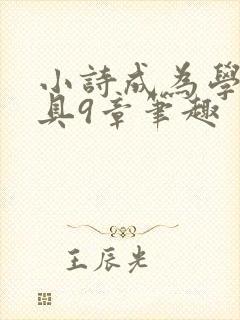 小詩成為學
具9章筆趣
王辰光